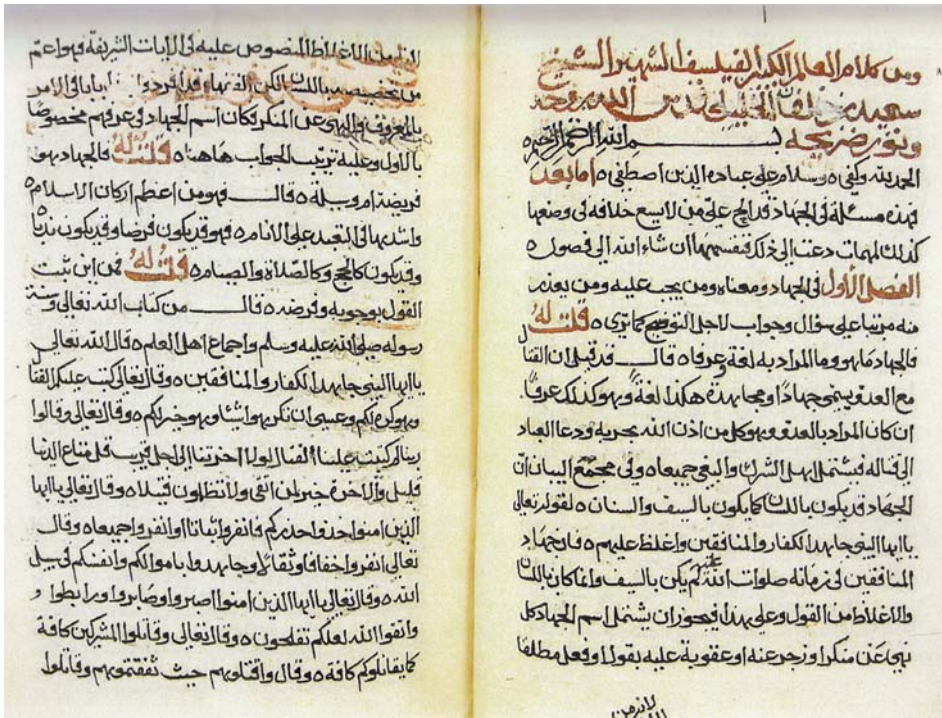 ومن كلام العالم الكبير الفيلسوف الشهير الشيخ
سعيد بن خلفان الخليلي قدس الله روحه
ونور ضريحه بسم الله الرحمن الرحيم ه
الحمد لله وكفى ه وسلام على عباده الذين اصطفى ه اما بعد
فهذه مسئلة في الجهاد قد الح علي من لا يسع خلافه في وضعها
كذلك لمهمات دعت الى ذلك فنقسمها ان شاء الله الى فصول ه
الفصل الأول في الجهاد ومعناه ومن يجب عليه ومن يعذر
منه مرتبا على سؤال وجواب لاجل التوضيح كما ترى ه قلت له
فالجهاد ما هو وما المراد به لغة وعرفا ه قال قد قيل ان القتال
مع العدو يسمى جهادًا ومجاهدة هكذا لغةً وهو كذلك عرفًا.
ان كان المراد بالعدو وهو كل من اذن الله بحربه ودعا العباد
الى قتاله فيشتمل اهل الشرك والبغي جميعا ه وفي مجمع البيان ان
الجهاد قد يكون باللسان كما يكون بالسيف والسنان ه لقوله تعالى
يا ايها النبي جاهد الكفار والمنافقين واغلظ عليهم ه فان جهاد
المنافقين في زمانه صلوات الله عليه لم يكن بالسيف وانما كان باللسان
والاغلاظ من القول وعلى هذا فيجوز ان يشتمل اسم الجهاد كل
نهي عن منكر او زجر عنه او عقوبة عليه بقول او فعل مطلقا
لانه من
الاغلاظ المنصوص عليه في الايات الشريفة فهو اعم
من تخصيصه باللسان لكن الفقهاء قد افردوا بابا في الامر
بالمعروف والنهي عن المنكر فكان اسم الجهاد في عرفهم مخصوصًا
بالاول وعليه ترتيب الجواب هاهنا ه قلت له فالجهاد هو
فريضة ام وسيلة ه قال فهو من اعظم اركان الاسلام ه
واشدها في التعبد على الانام ه فهو قد يكون فرضا وقد يكون ندبا
وقد يكون كالحج وكالصلاة والصيام ه قلت له فمن اين ثبت
القول بوجوبه وفرضه ه قال من كتاب الله تعالى وسنة
رسوله صلى الله عليه وسلم واجماع اهل العلم ه قال الله تعالى
يا ايها النبي جاهد الكفار والمنافقين ه وقال تعالى كتب عليكم القتال
وهو كره لكم وعسى ان تكرهوا شئا وهو خير لكم ه وقال تعالى وقالوا
ربنا لم كتبت علينا القتال لولا اخرتنا الى اجل قريب قل متاع الدنيا
قليل والاخرة خير لمن اتقى ولا تظلمون فتيلا ه وقال تعالى يا ايها
الذين امنوا خذوا حذركم فانفروا ثباتا او انفروا جميعا ه وقال
تعالى انفروا خفافا وثقالًا وجاهدوا باموالكم وانفسكم في سبيل
الله ه وقال تعالى يا ايها الذين امنوا اصبروا وصابروا ورابطوا و
واتقوا الله لعلكم تفلحون ه وقال تعالى وقاتلوا المشركين كافة
كما يقاتلوكم كافه ه وقال واقتلوهم حيث ثقفتموهم وقاتلوا